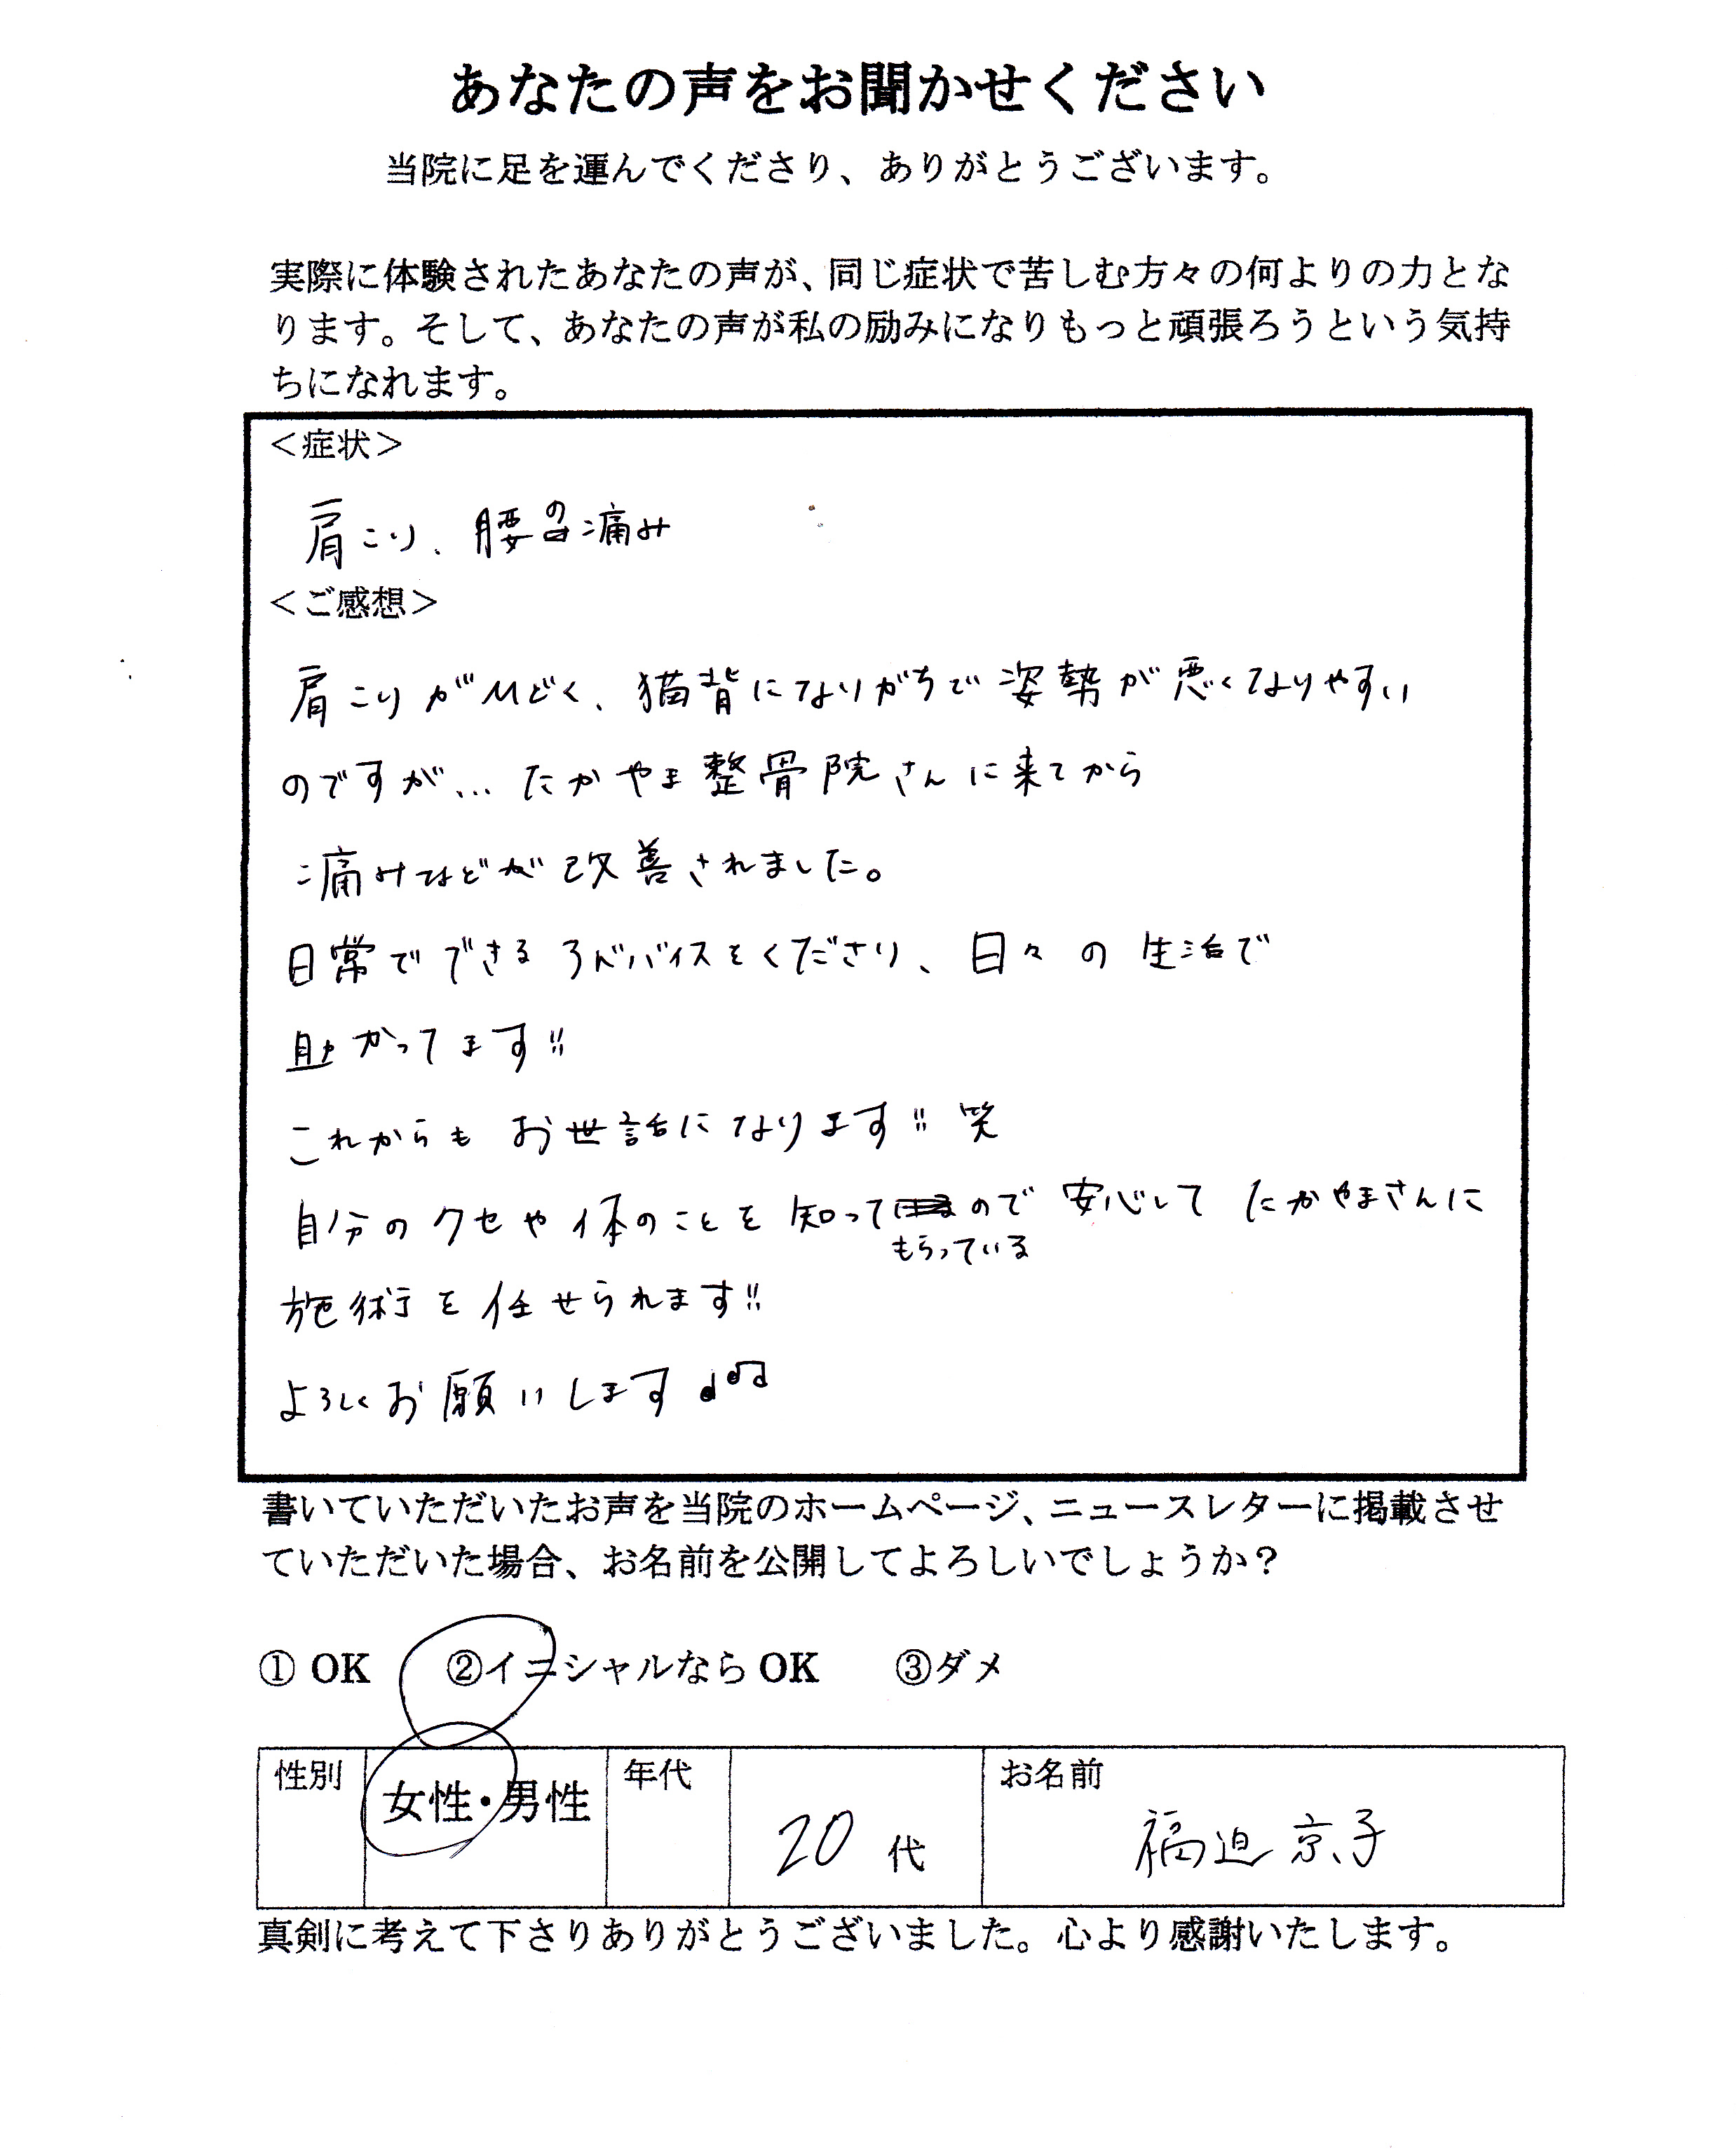 あなたの声をお聞かせください
当院に足を運んでくださり、ありがとうございます。
実際に体験されたあなたの声が、同じ症状で苦しむ方々の何よりの力とな
ります。そして、あなたの声が私の励みになりもっと頑張ろうという気持
ちになれます。
＜症状＞
肩こり、腰の痛み
＜ご感想＞
肩こりがひどく、猫背になりがちで姿勢が悪くなりやすい
のですが…たかやま整骨院さんに来てから
痛みなどが改善されました。
日常でできるアドバイスをくださり、日々の生活で
助かってます!!
これからもお世話になります!! 笑
自分のクセや体のことを知ってので安心してたかやまさんに
もらっている
施術を任せられます!!
よろしくお願いします♩♫
書いていただいたお声を当院のホームページ、ニュースレターに掲載させ
ていただいた場合、お名前を公開してよろしいでしょうか？
① OK ②イニシャルならOK ③ダメ
性別 女性・男性 年代 20代 お名前 福迫京子
真剣に考えて下さりありがとうございました。心より感謝いたします。